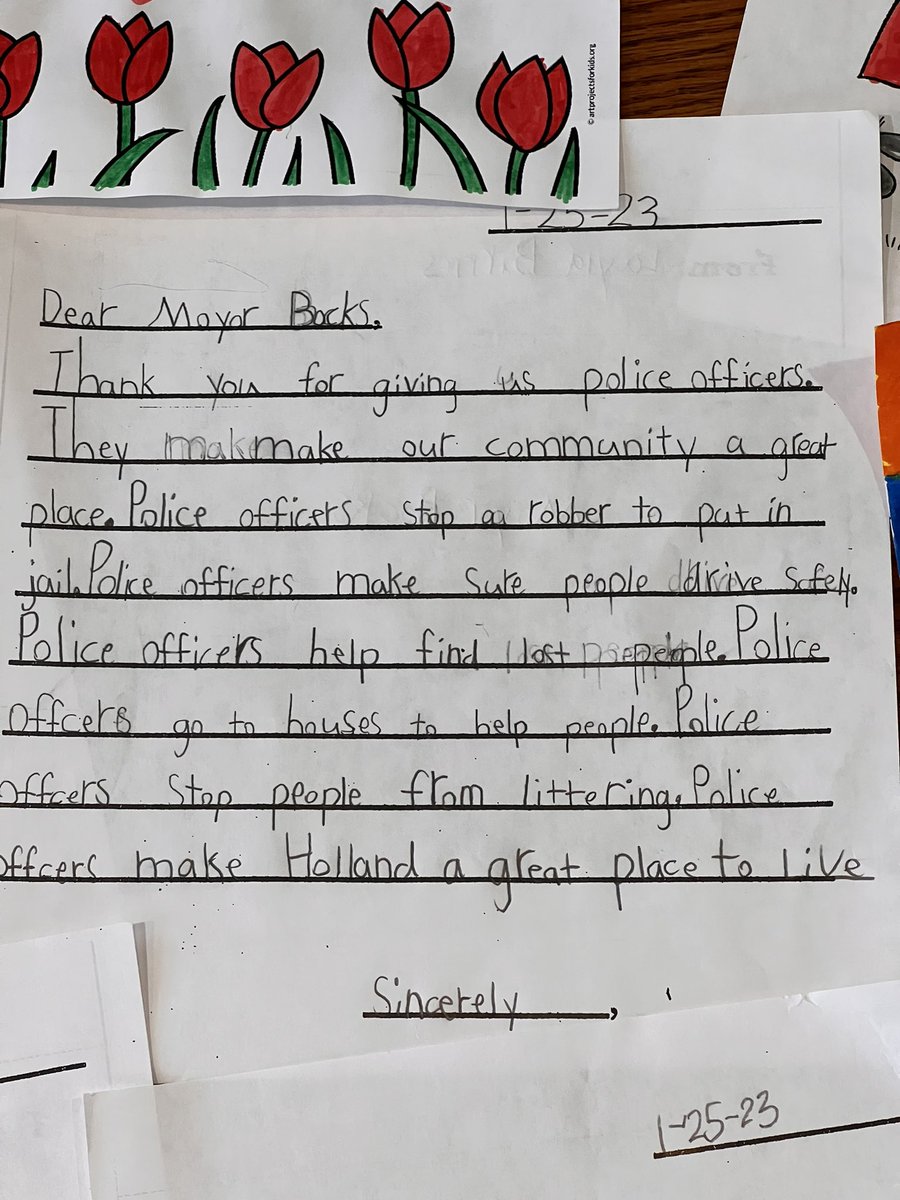 © artprojectsforkids.org
1-25-23
Dear Mayor Bocks,
Thank you for giving us police officers.
They make our community a great
place. Police officers stop a robber to put in
jail. Police officers make sure people drive safely.
Police officers help find lost people. Police
offcers go to houses to help people. Police
offcers stop people from littering. Police
offcers make Holland a great place to live
Sincerely,
1-25-23